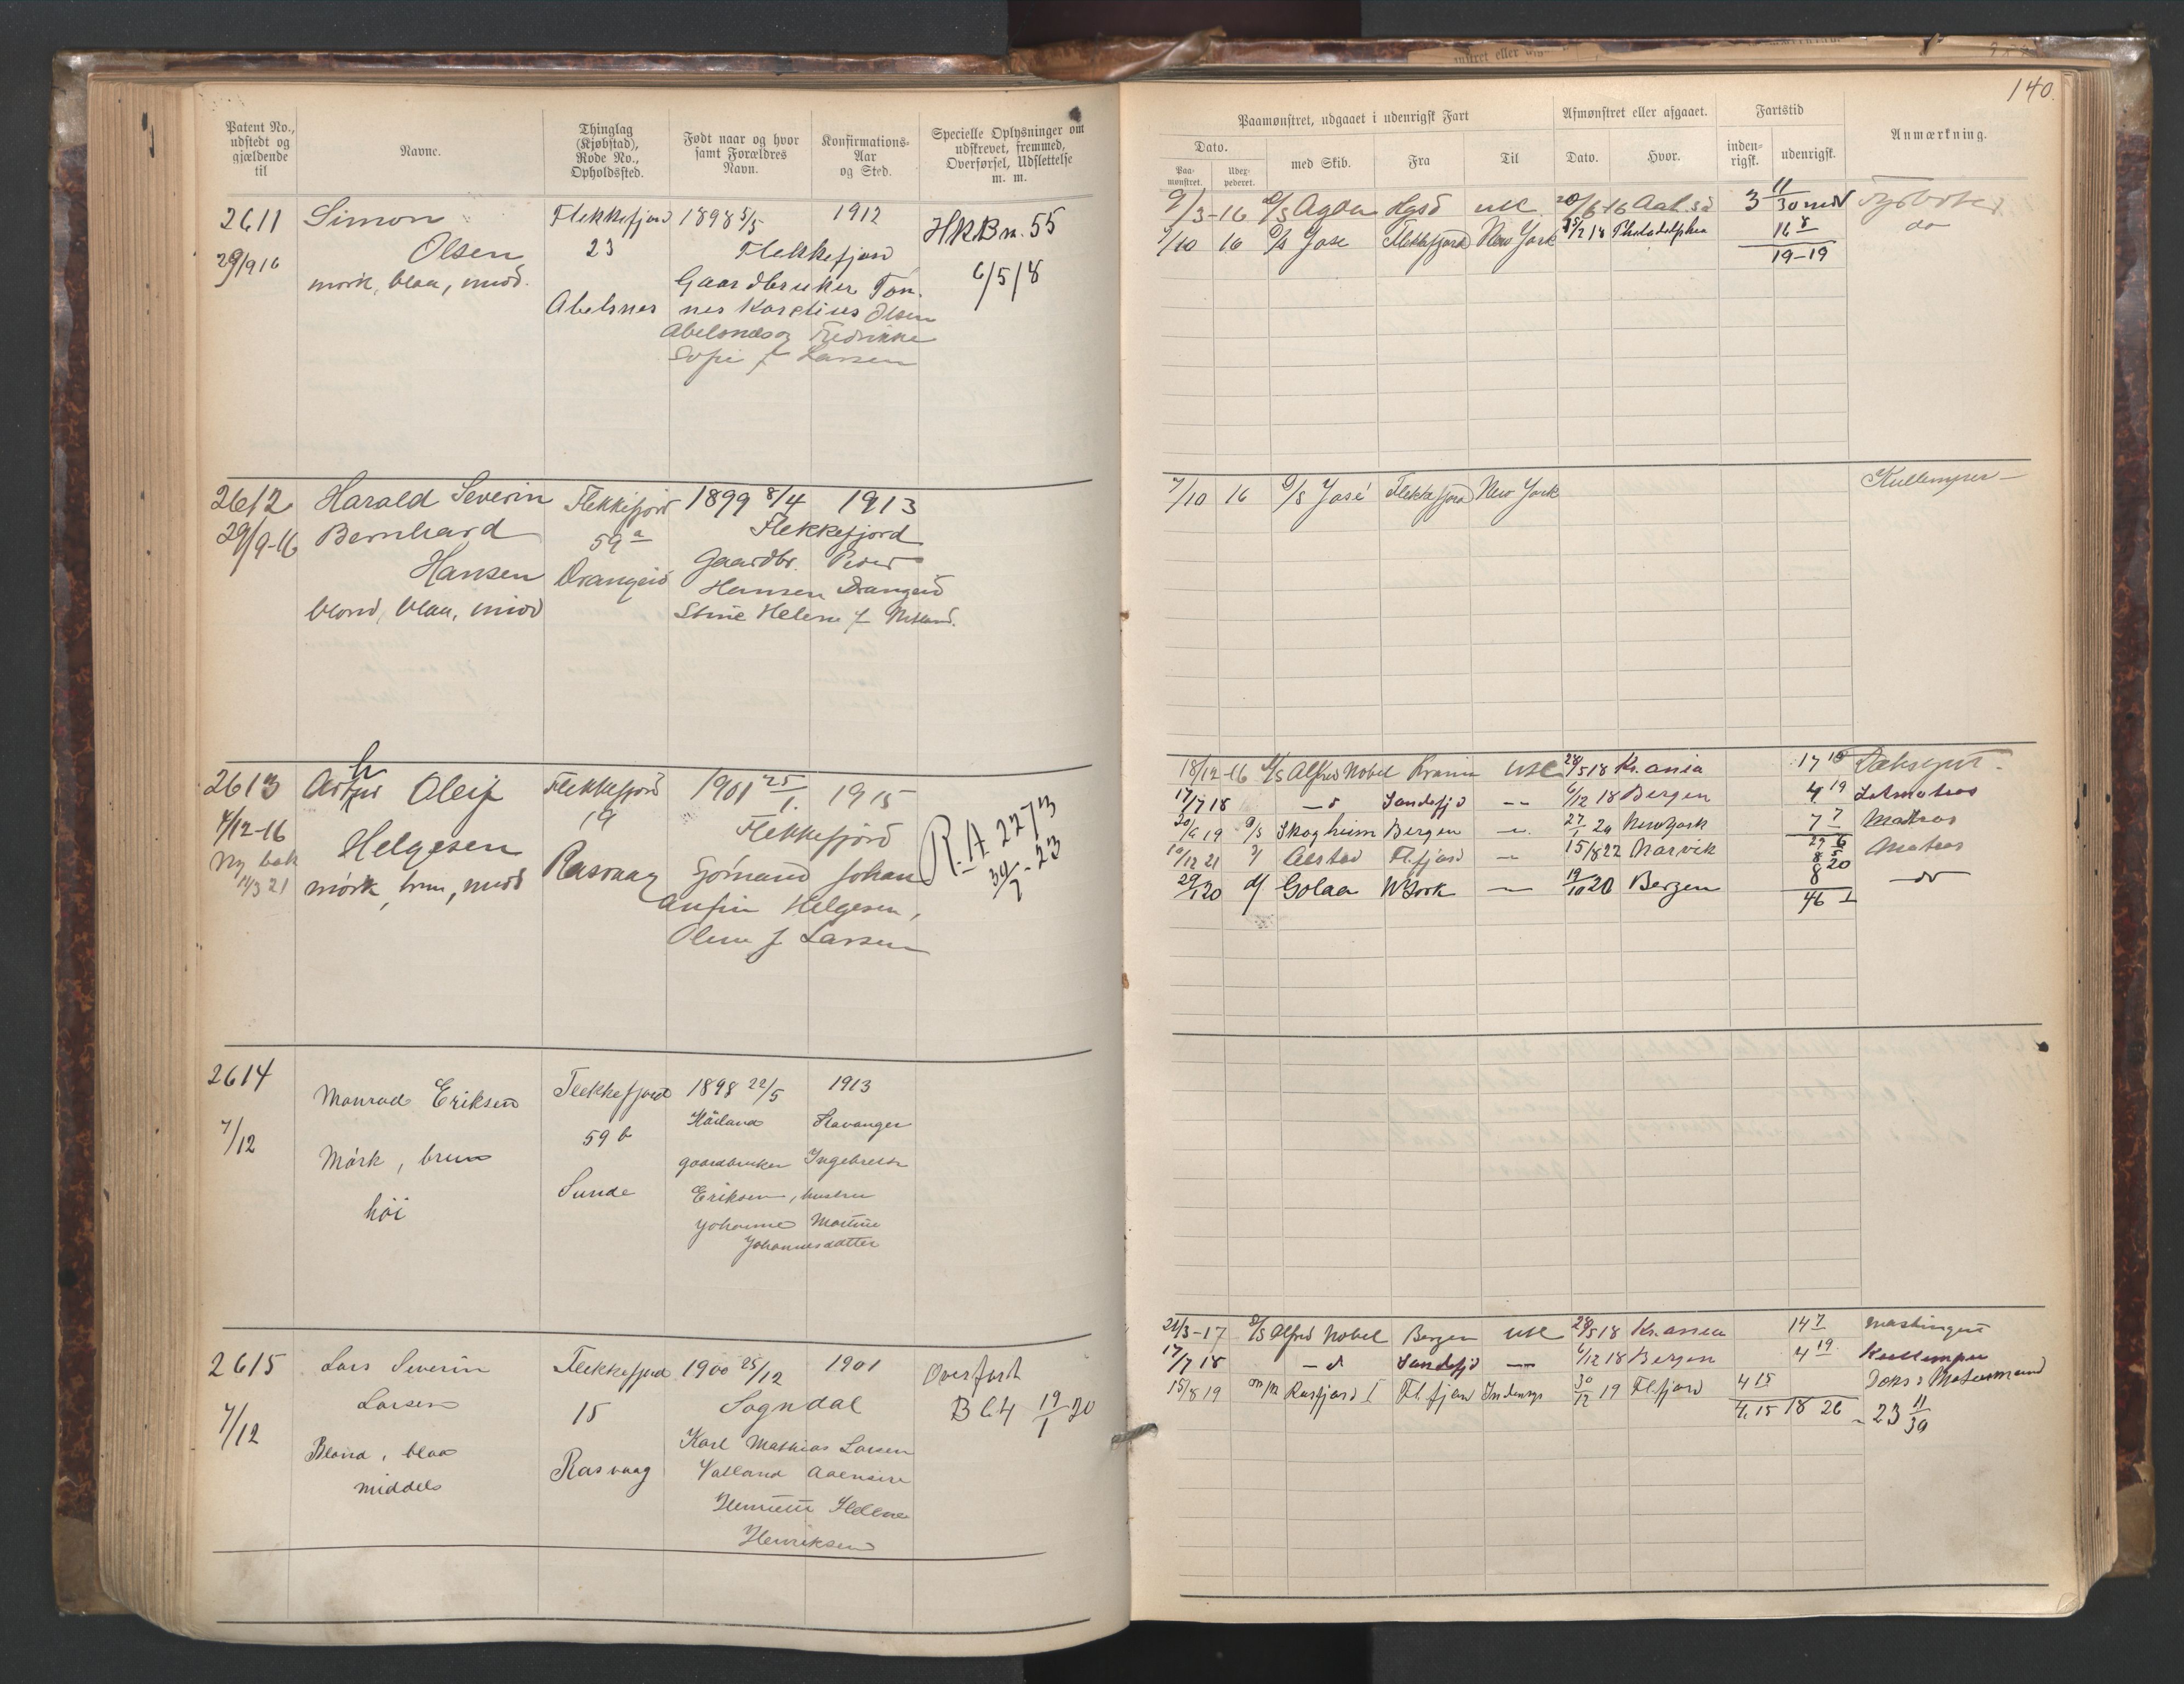 140.
Patent No., udstedt og gjældende til
Navne.
Thinglag (Kjøbstad), Rode No., Opholdssted.
Født naar og hvor samt Forældres Navn.
Konfirmations-Aar og Sted.
Specielle Oplysninger om udskrevet, fremmed, Overførsel, Udslettelse m. m.
Paamønstret, udgaaet i udenrigsk Fart
Afmønstret eller afgaaet.
Fartstid
Anmærkning.
Dato.
Paa-mønstret.
med Skib.
Fra
Til
Dato.
Hvor.
inden-rigsk.
udenrigsk.
2611
29/9 16
Simon
Olsen
mørk, blaa, midd.
Flekkefjord
23
Abelsnes
1898 5/5
1912
Flekkefjord
Gaardbruker Tøn-
nes Karelius Olsen
Abelsnes og Fredrikke
Sofie f Larsen
HKB n. 55
6/5/8
9/3-16 Agda
Aalesd
3
7/10 16 Jose Flekkefjord New York
/2 18 Philadelphia
16 8
do
19-19
2612
29/9-16
Harald Severin
Bernhard
Hansen
blond, blaa, midd
Flekkefjord
59 a
Drangeid
1899 8/4 1913
Flekkefjord
Gaardbr. Peder
Hansen Drangeid
Stine Helene f
7/10 16 José Flekkefjord New York
Kullemper
2613
4/12-16
Ny bok
14/3 21
Arthur Oleif
Helgesen
mørk, brun, midd
Flekkefjord
19
Rasvaag
1901 25/1. 1915
Flekkefjord
Sjømand Johan
Anfin Helgesen,
Oline f Larsen
R.A 2273
30/7-23
18/12-16 Alfred Nobel
28/5 18 Kr.ania
17 10 Dæksgut
17/7 18 Sandefjd
6/12 18 Bergen
4 19 Letmatros
20/6 19 Skogheim Bergen
27/1 20 New York
7 7 Matros
29 6
10/12 21 Alstad Fl.fjord
15/8 22 Narvik
8 5
Matros
29/1 20 Golaa N York
19/10 20 Bergen
8 20
do
46 1
2614
7/12
Monrad Eriksen
Mörk, brun
höi
Flekkefjord
59 b
Sunde
1898 22/5
1913
Stavanger
gaardbruker Ingebret
Eriksen, hustru
Johanne Martine
Johannesdatter
2615
7/12
Lars Severin
Larsen
Blond, blaa
middels
Flekkefjord
15
Rasvaag
1900 25/12
1901
Sogndal
Karl Mathias Larsen
Valland Aaensire
Henriette Helene
Henriksen
Overført
B 64 19/1 20
21/3-17 Alfred Nobel Bergen
28/5 18 Kr.ania
14 7 Messingut
17/7 18 Sandefjd
6/12 18 Bergen
4 19 Kullemper
15/8 19 Rasfjord I Fl.fjord Indenrgs
30/12 19 Fl.fjord
4 15
Dæks & Motormand
4 15 18 26 - 23 11/30